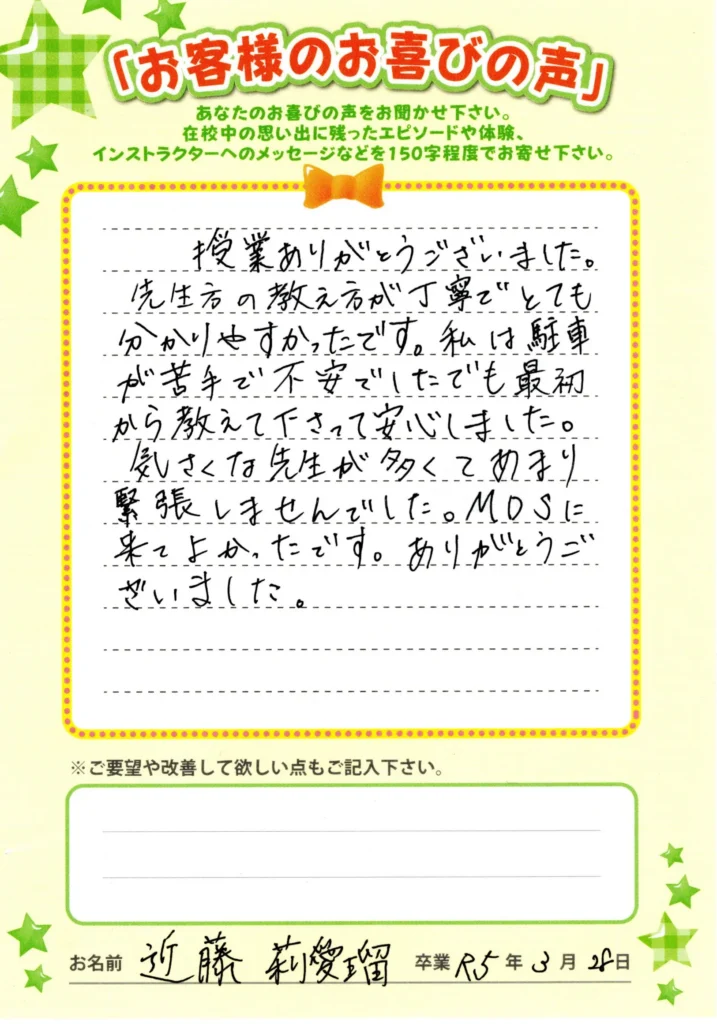 「お客様のお喜びの声」
あなたのお喜びの声をお聞かせ下さい。
在校中の思い出に残ったエピソードや体験、
インストラクターへのメッセージなどを150字程度でお寄せ下さい。
授業ありがとうございました。
先生方の教え方が丁寧でとても
分かりやすかったです。私は駐車
が苦手で不安でしたでも最初
から教えて下さって安心しました。
気さくな先生が多くてあまり
緊張しませんでした。MDSに
来てよかったです。ありがとうご
ざいました。
※ご要望や改善して欲しい点もご記入下さい。
お名前 近藤 莉愛瑠 卒業 R5年3月28日